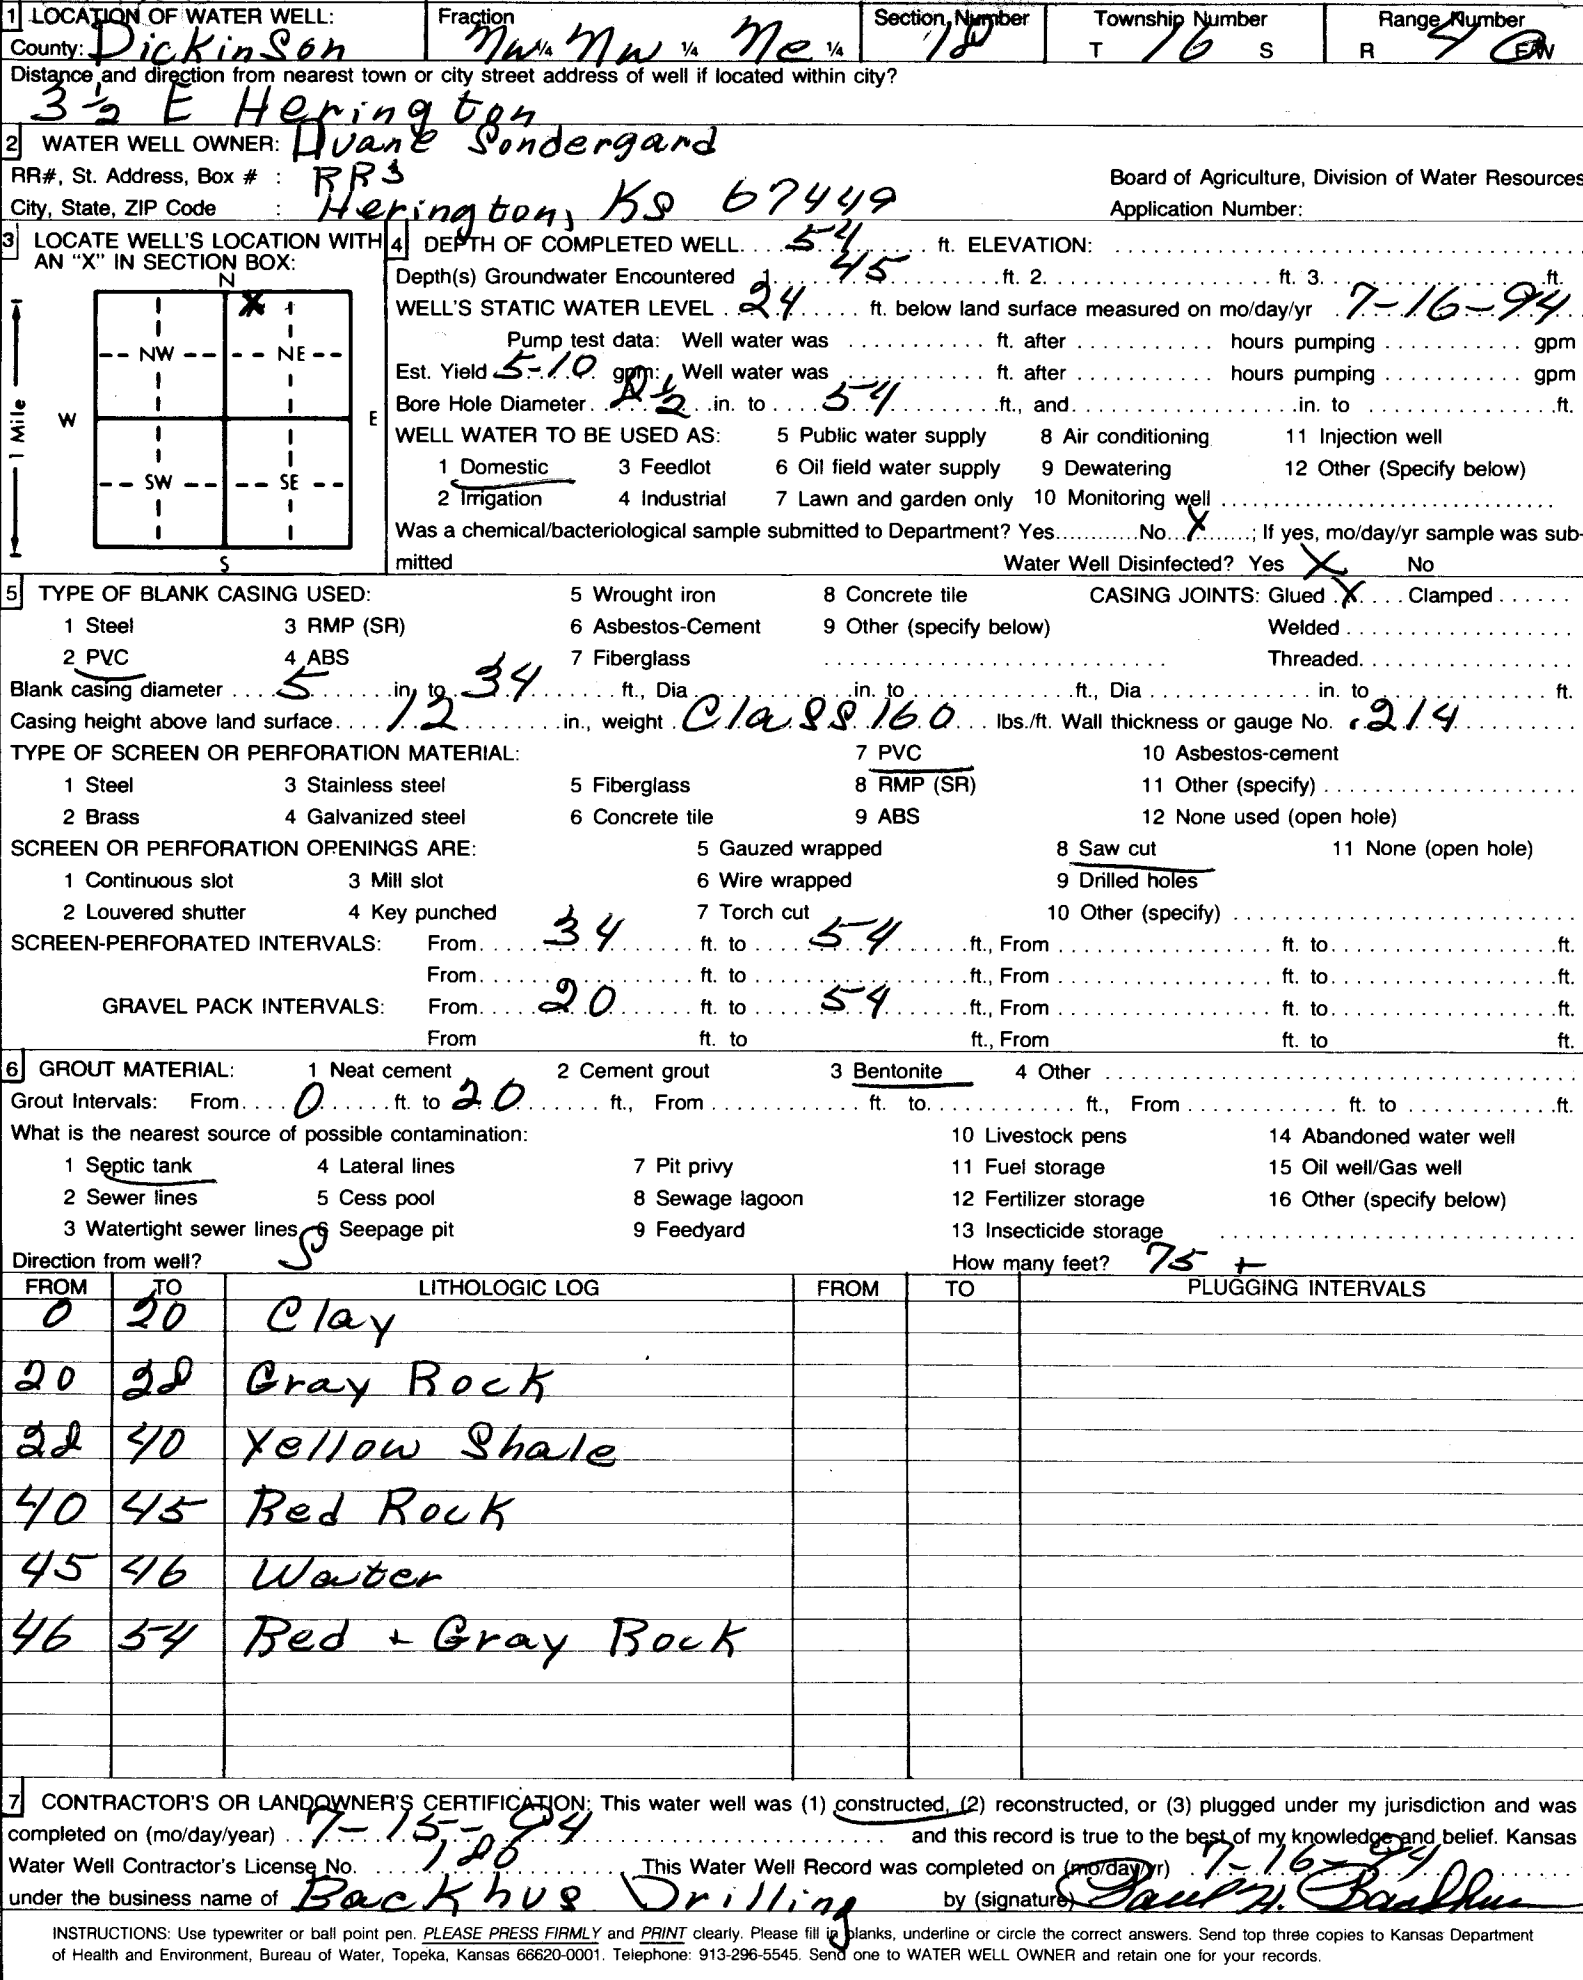 1 LOCATION OF WATER WELL: Fraction Section Number Township Number Range Number
County: Dickinson Nw ¼ Nw ¼ Ne ¼ 18 T 16 S R 4 E/W
Distance and direction from nearest town or city street address of well if located within city?
3½ E Herington
2 WATER WELL OWNER: Duane Sondergard
RR#, St. Address, Box # : RR3 Board of Agriculture, Division of Water Resources
City, State, ZIP Code : Herington, Ks 67449 Application Number:
3 LOCATE WELL'S LOCATION WITH AN "X" IN SECTION BOX:
N
X
NW NE
W E
SW SE
S
1 Mile
4 DEPTH OF COMPLETED WELL 54 ft. ELEVATION:
Depth(s) Groundwater Encountered 1. 45 ft. 2. ft. 3. ft.
WELL'S STATIC WATER LEVEL 24 ft. below land surface measured on mo/day/yr 7-16-94
Pump test data: Well water was ft. after hours pumping gpm
Est. Yield 5-10 gpm: Well water was ft. after hours pumping gpm
Bore Hole Diameter 8½ in. to 54 ft., and in. to ft.
WELL WATER TO BE USED AS: 5 Public water supply 8 Air conditioning 11 Injection well
1 Domestic 3 Feedlot 6 Oil field water supply 9 Dewatering 12 Other (Specify below)
2 Irrigation 4 Industrial 7 Lawn and garden only 10 Monitoring well
Was a chemical/bacteriological sample submitted to Department? Yes No X ; If yes, mo/day/yr sample was sub-
mitted Water Well Disinfected? Yes X No
5 TYPE OF BLANK CASING USED: 5 Wrought iron 8 Concrete tile CASING JOINTS: Glued X Clamped
1 Steel 3 RMP (SR) 6 Asbestos-Cement 9 Other (specify below) Welded
2 PVC 4 ABS 7 Fiberglass Threaded
Blank casing diameter 5 in. to 34 ft., Dia in. to ft., Dia in. to ft.
Casing height above land surface 12 in., weight Class 160 lbs./ft. Wall thickness or gauge No. .214
TYPE OF SCREEN OR PERFORATION MATERIAL: 7 PVC 10 Asbestos-cement
1 Steel 3 Stainless steel 5 Fiberglass 8 RMP (SR) 11 Other (specify)
2 Brass 4 Galvanized steel 6 Concrete tile 9 ABS 12 None used (open hole)
SCREEN OR PERFORATION OPENINGS ARE: 5 Gauzed wrapped 8 Saw cut 11 None (open hole)
1 Continuous slot 3 Mill slot 6 Wire wrapped 9 Drilled holes
2 Louvered shutter 4 Key punched 7 Torch cut 10 Other (specify)
SCREEN-PERFORATED INTERVALS: From 34 ft. to 54 ft., From ft. to ft.
From ft. to ft., From ft. to ft.
GRAVEL PACK INTERVALS: From 20 ft. to 54 ft., From ft. to ft.
From ft. to ft., From ft. to ft.
6 GROUT MATERIAL: 1 Neat cement 2 Cement grout 3 Bentonite 4 Other
Grout Intervals: From 0 ft. to 20 ft., From ft. to ft., From ft. to ft.
What is the nearest source of possible contamination: 10 Livestock pens 14 Abandoned water well
1 Septic tank 4 Lateral lines 7 Pit privy 11 Fuel storage 15 Oil well/Gas well
2 Sewer lines 5 Cess pool 8 Sewage lagoon 12 Fertilizer storage 16 Other (specify below)
3 Watertight sewer lines 6 Seepage pit 9 Feedyard 13 Insecticide storage
Direction from well? S How many feet? 75 +
FROM TO LITHOLOGIC LOG FROM TO PLUGGING INTERVALS
0 20 Clay
20 28 Gray Rock
28 40 Yellow Shale
40 45 Red Rock
45 46 Water
46 54 Red + Gray Rock
7 CONTRACTOR'S OR LANDOWNER'S CERTIFICATION: This water well was (1) constructed, (2) reconstructed, or (3) plugged under my jurisdiction and was
completed on (mo/day/year) 7-15-94 and this record is true to the best of my knowledge and belief. Kansas
Water Well Contractor's License No. 186 This Water Well Record was completed on (mo/day/yr) 7-16-94
under the business name of Backhus Drilling by (signature) Paul H. Backhus
INSTRUCTIONS: Use typewriter or ball point pen. PLEASE PRESS FIRMLY and PRINT clearly. Please fill in blanks, underline or circle the correct answers. Send top three copies to Kansas Department
of Health and Environment, Bureau of Water, Topeka, Kansas 66620-0001. Telephone: 913-296-5545. Send one to WATER WELL OWNER and retain one for your records.